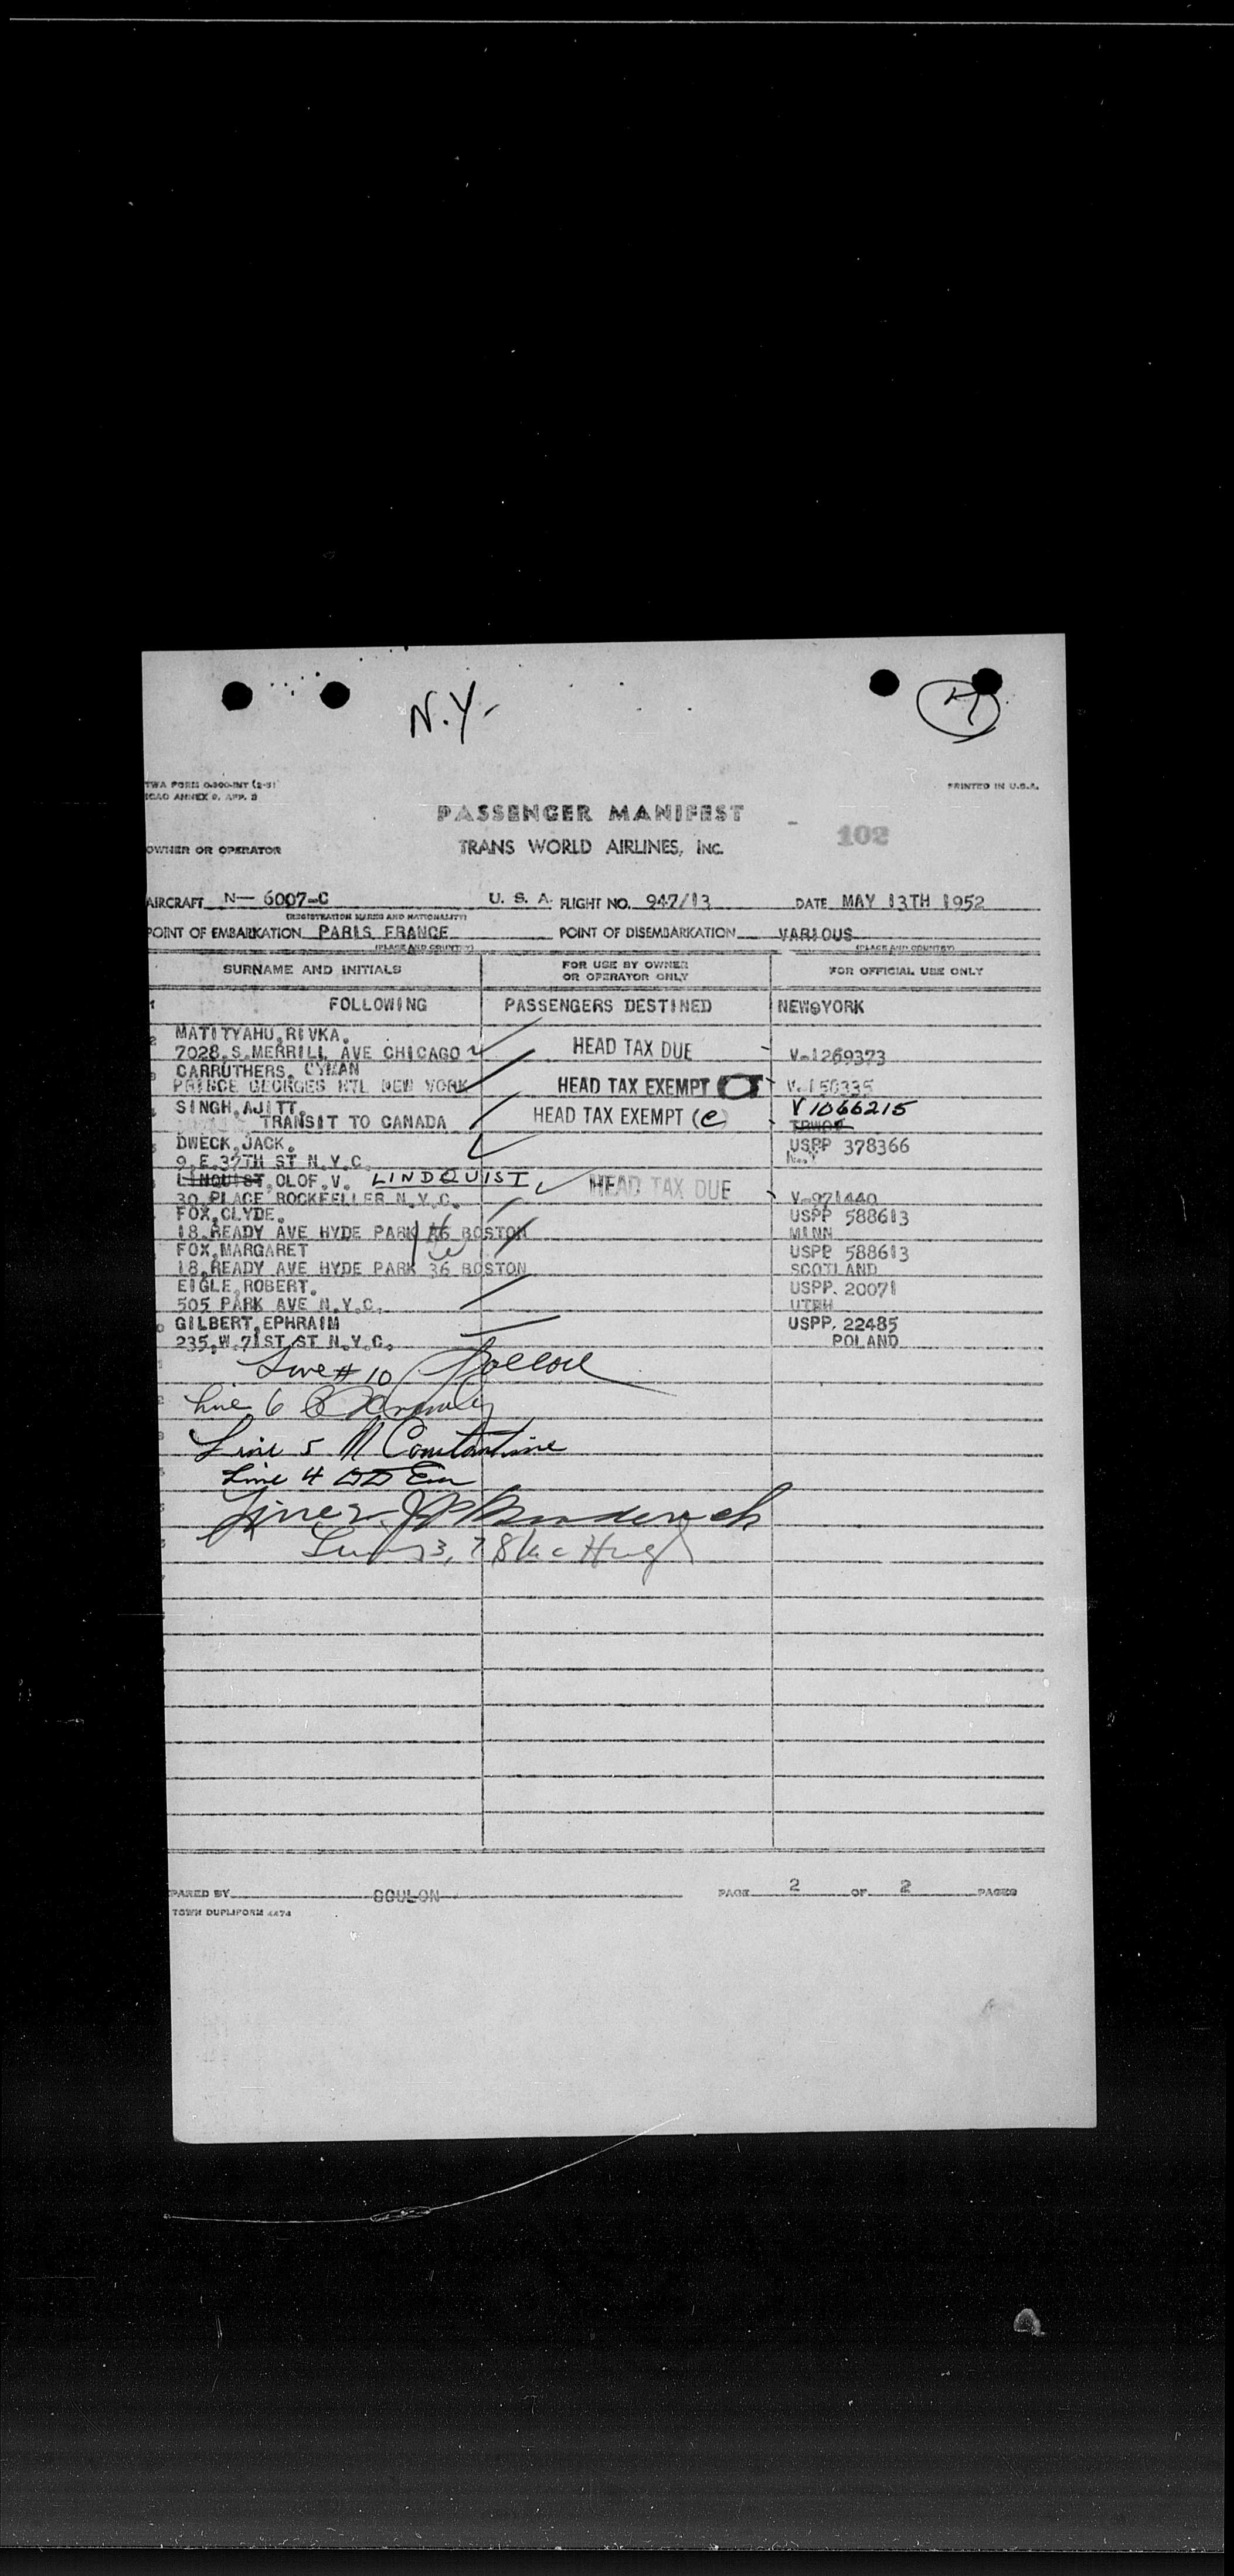 N.Y.
TWA FORM O-300-INT (2-51
ICAO ANNEX 9, APP. 3
PRINTED IN U.S.A.
PASSENGER MANIFEST
102
OWNER OR OPERATOR TRANS WORLD AIRLINES, INC.
AIRCRAFT N— 6007-C U. S. A. FLIGHT NO. 947/13 DATE MAY 13TH 1952
(REGISTRATION MARKS AND NATIONALITY)
POINT OF EMBARKATION PARIS FRANCE POINT OF DISEMBARKATION VARIOUS
(PLACE AND COUNTRY) (PLACE AND COUNTRY)
SURNAME AND INITIALS FOR USE BY OWNER OR OPERATOR ONLY FOR OFFICIAL USE ONLY
FOLLOWING PASSENGERS DESTINED NEW YORK
MATITYAHU,RIVKA.
7028.S.MERRILL AVE CHICAGO HEAD TAX DUE V-1269373
CARRUTHERS. LYMAN
PRINCE GEORGES HTL NEW YORK HEAD TAX EXEMPT V-150335
SINGH,AJITT. V1066215
TRANSIT TO CANADA HEAD TAX EXEMPT (e)
DWECK,JACK. USPP 378366
9.E.37TH ST N.Y.C. N.Y
LINQUIST,OLOF.V. LINDQUIST HEAD TAX DUE
30.PLACE ROCKFELLER N.Y.C. V-971440
FOX,CLYDE. USPP 588613
18.READY AVE HYDE PARK 36 BOSTON MINN
FOX,MARGARET USPP 588613
18.READY AVE HYDE PARK 36 BOSTON SCOTLAND
EIGLE,ROBERT. USPP. 20071
505 PARK AVE N.Y.C. UTAH
GILBERT,EPHRAIM USPP. 22485
235.W.71ST ST N.Y.C. POLAND
Line # 10
Line 6
Line 5 M Constantine
Line 4
Line 2
3, 7 8
PARED BY GOULON PAGE 2 OF 2 PAGES
TOWN DUPLIFORM 4474